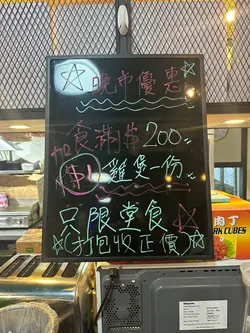 晚市優惠
食滿$200
加$1雞煲一份
只限堂食
(打包收正價)
肉丁
RK CUBES